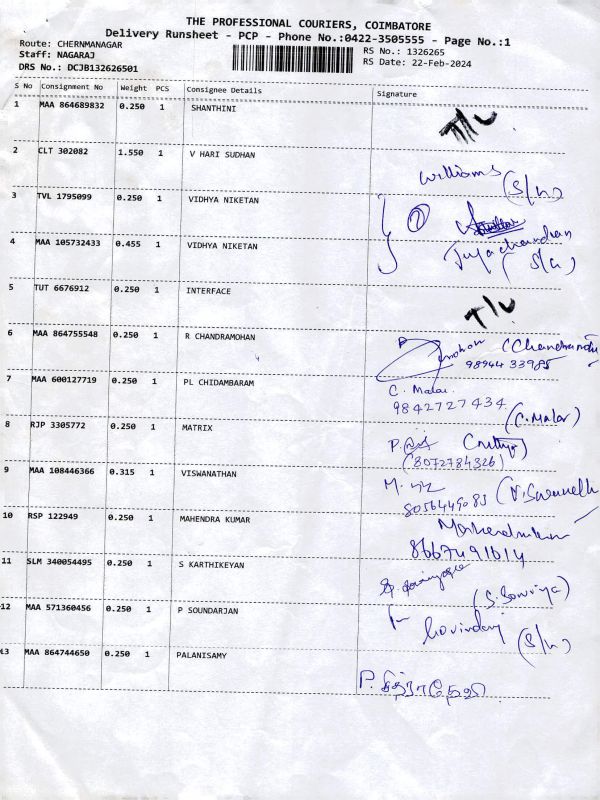 THE PROFESSIONAL COURIERS, COIMBATORE
Delivery Runsheet - PCP - Phone No.:0422-3505555 - Page No.:1
Route: CHERNMANAGAR RS No.: 1326265
Staff: NAGARAJ RS Date: 22-Feb-2024
DRS No.: DCJB132626501
S No Consignment No Weight PCS Consignee Details Signature
1 MAA 864689832 0.250 1 SHANTHINI T/L
2 CLT 302082 1.550 1 V HARI SUDHAN Williams (S/n)
3 TVL 1795099 0.250 1 VIDHYA NIKETAN
4 MAA 105732433 0.455 1 VIDHYA NIKETAN
5 TUT 6676912 0.250 1 INTERFACE T/L
6 MAA 864755548 0.250 1 R CHANDRAMOHAN
98944 33985
7 MAA 600127719 0.250 1 PL CHIDAMBARAM C. Malar
9842727434 (C. Malar)
8 RJP 3305772 0.250 1 MATRIX
(8072784326)
9 MAA 108446366 0.315 1 VISWANATHAN
8056449083
10 RSP 122949 0.250 1 MAHENDRA KUMAR
8667491014
11 SLM 340054495 0.250 1 S KARTHIKEYAN
(S. Sowriya)
12 MAA 571360456 0.250 1 P SOUNDARJAN Govindaraj (S/n)
13 MAA 864744650 0.250 1 PALANISAMY P. சித்ராதேவி